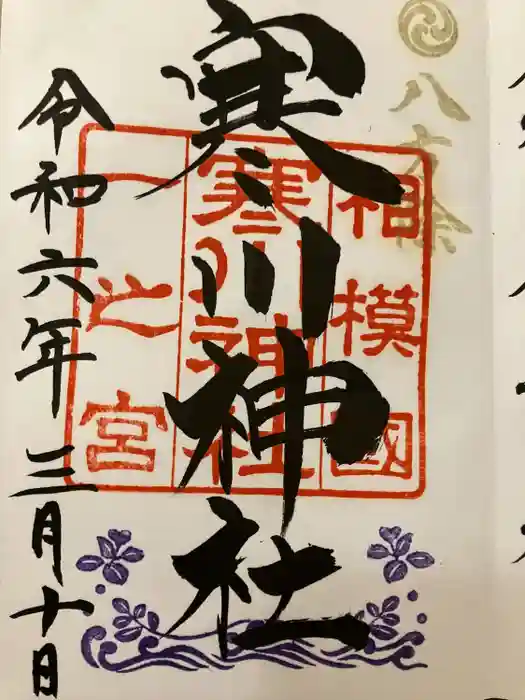 八方除
寒川神社
相模國
寒川神社
一之宮
令和六年三月十日